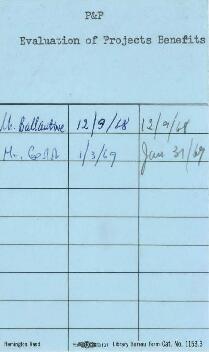 P&P
Evaluation of Projects Benefits
Mr. Ballantine 12/9/68 12/9/68
Mr. 1/3/69 Jan 31/69
Remington Rand Library Bureau Form Cat. No. 1153.3